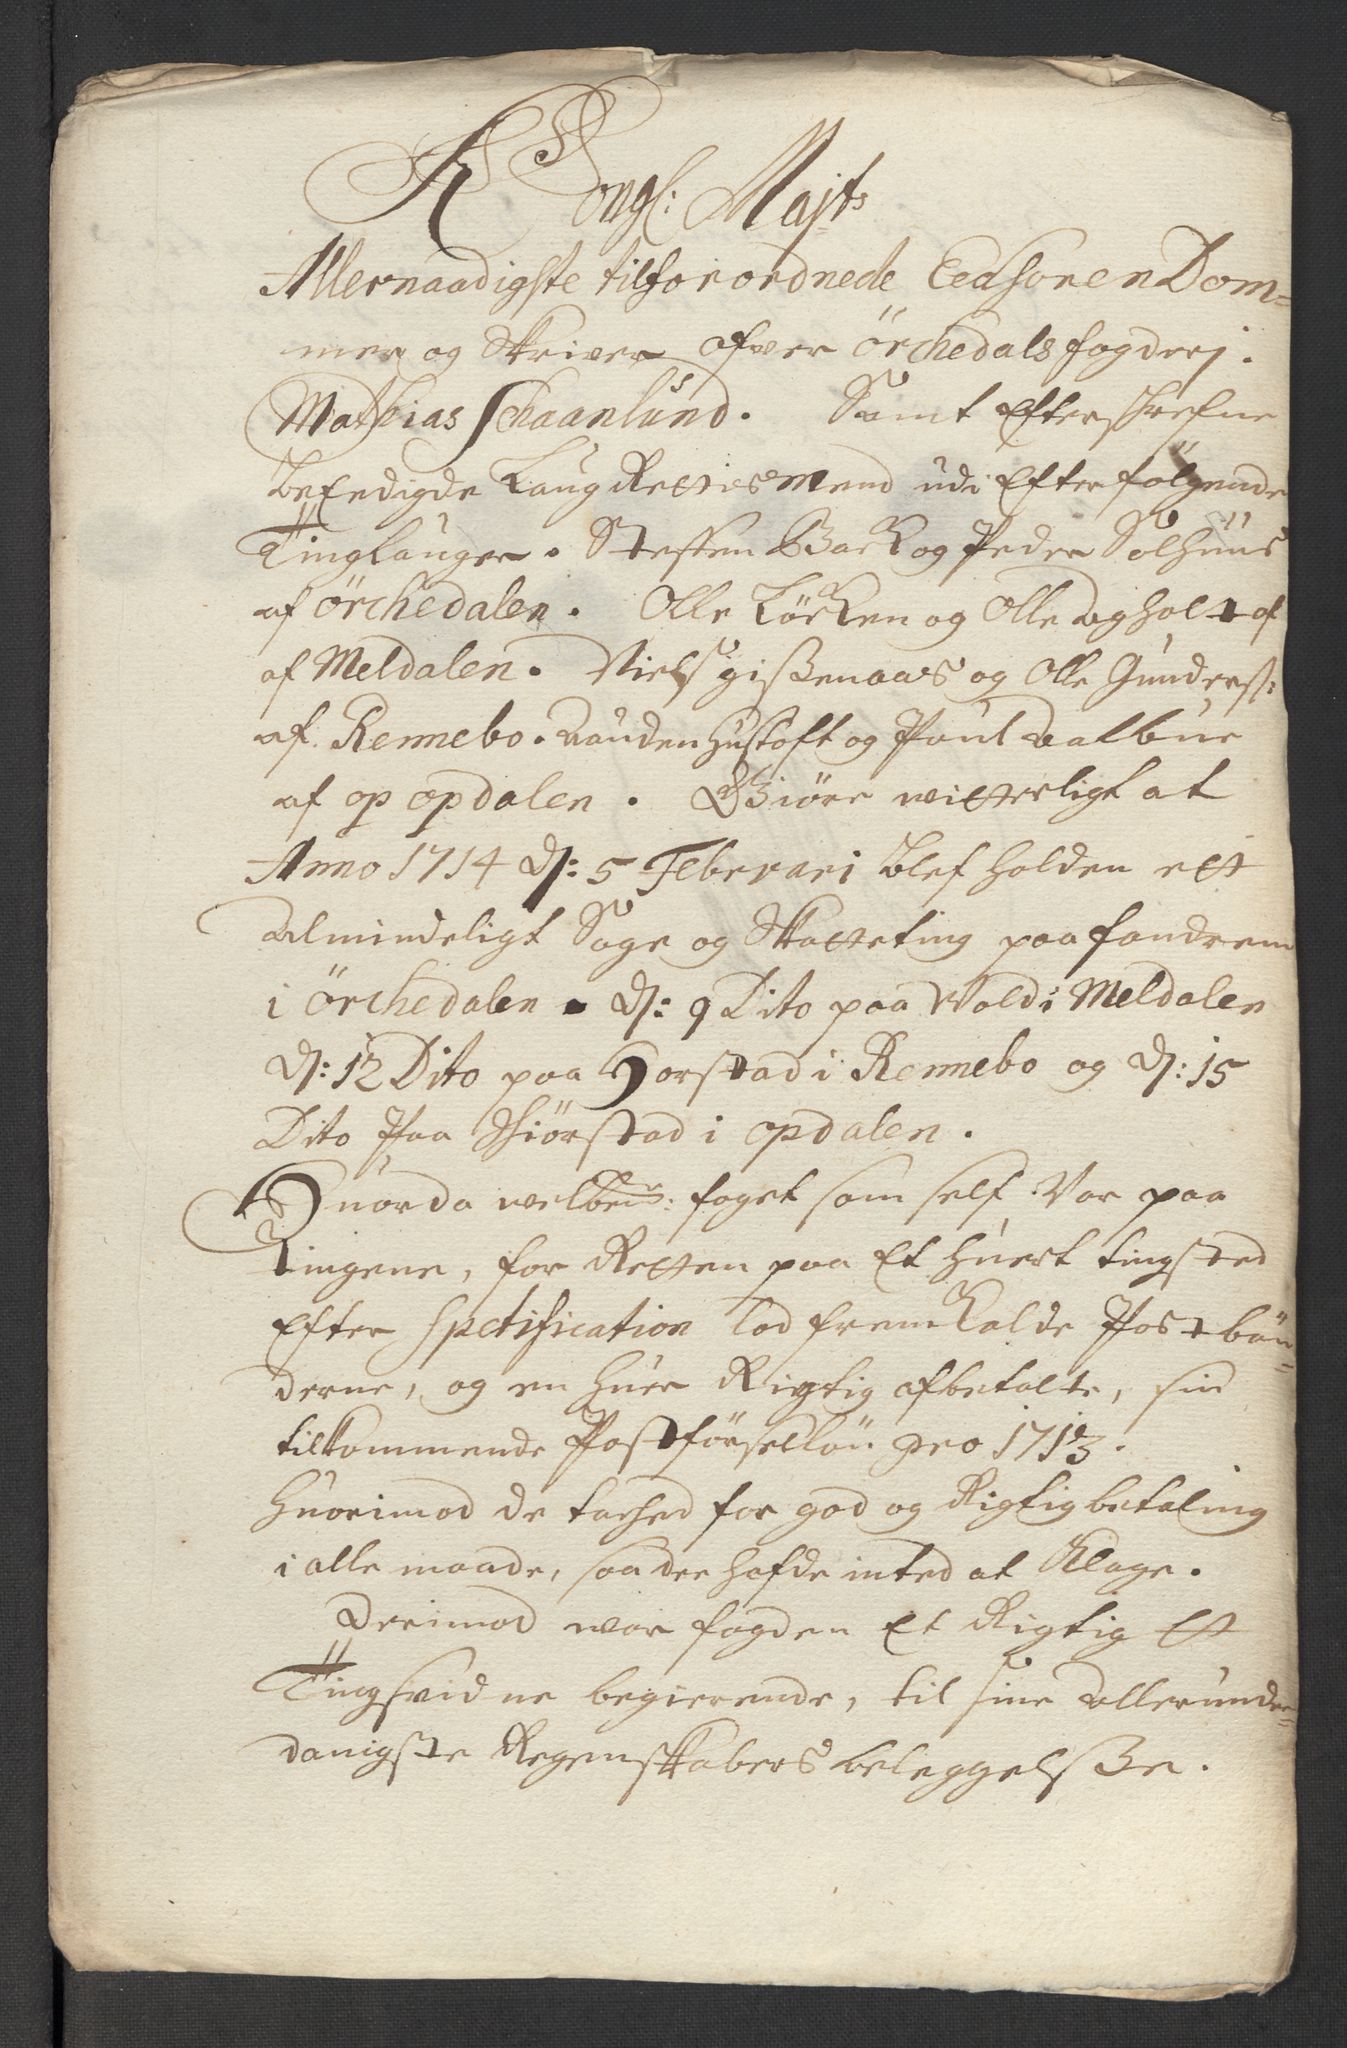 Kongl: Mayts
Allernaadigste tilforordnede Eedsoren Dom=
mer og Skriver ofver Örchedals fogderj.
Mathias Schaanlund. Samt Efterschrefne
beEedigde LaugRettismend udi Efterfølgende
Tinglauger. Steffen Back og Peder Solhuus
af Örchedalen. Olle Löcken og Olle Agholt af
af Meldalen. Niels gissenaas og Olle Gunders:
af Rennebo. Auden Hustoft og Poul Dalbue
af op opdalen. Giöre witterligt at
Anno 1714 d: 5 Februari blef holden ett
Almindeligt Sage og Skatteting paa fandrem
i Örchedalen. d: 9 Dito paa Wold i Meldalen
d: 12 Dito paa Horstad i Rennebo og d: 15
Dito Paa Schiörstad i opdalen.
Huorda welbew: foget som self Var paa
Tingene, for Retten paa Et huert tingsted
Efter Spetification lod fremkalde Postbön=
derne, og en huer Rigtig afbetalte, sin
tilkommende Postförsellön pro 1713.
Huorimod de tached for god og Rigtig betaling
i alle maade, saa der hafde inted at Klage.
Derimod war fogden Et Rigtig Et
Tingsvidne begierende, til sine Allerunder=
danigste Regenskabers beleggelsse.